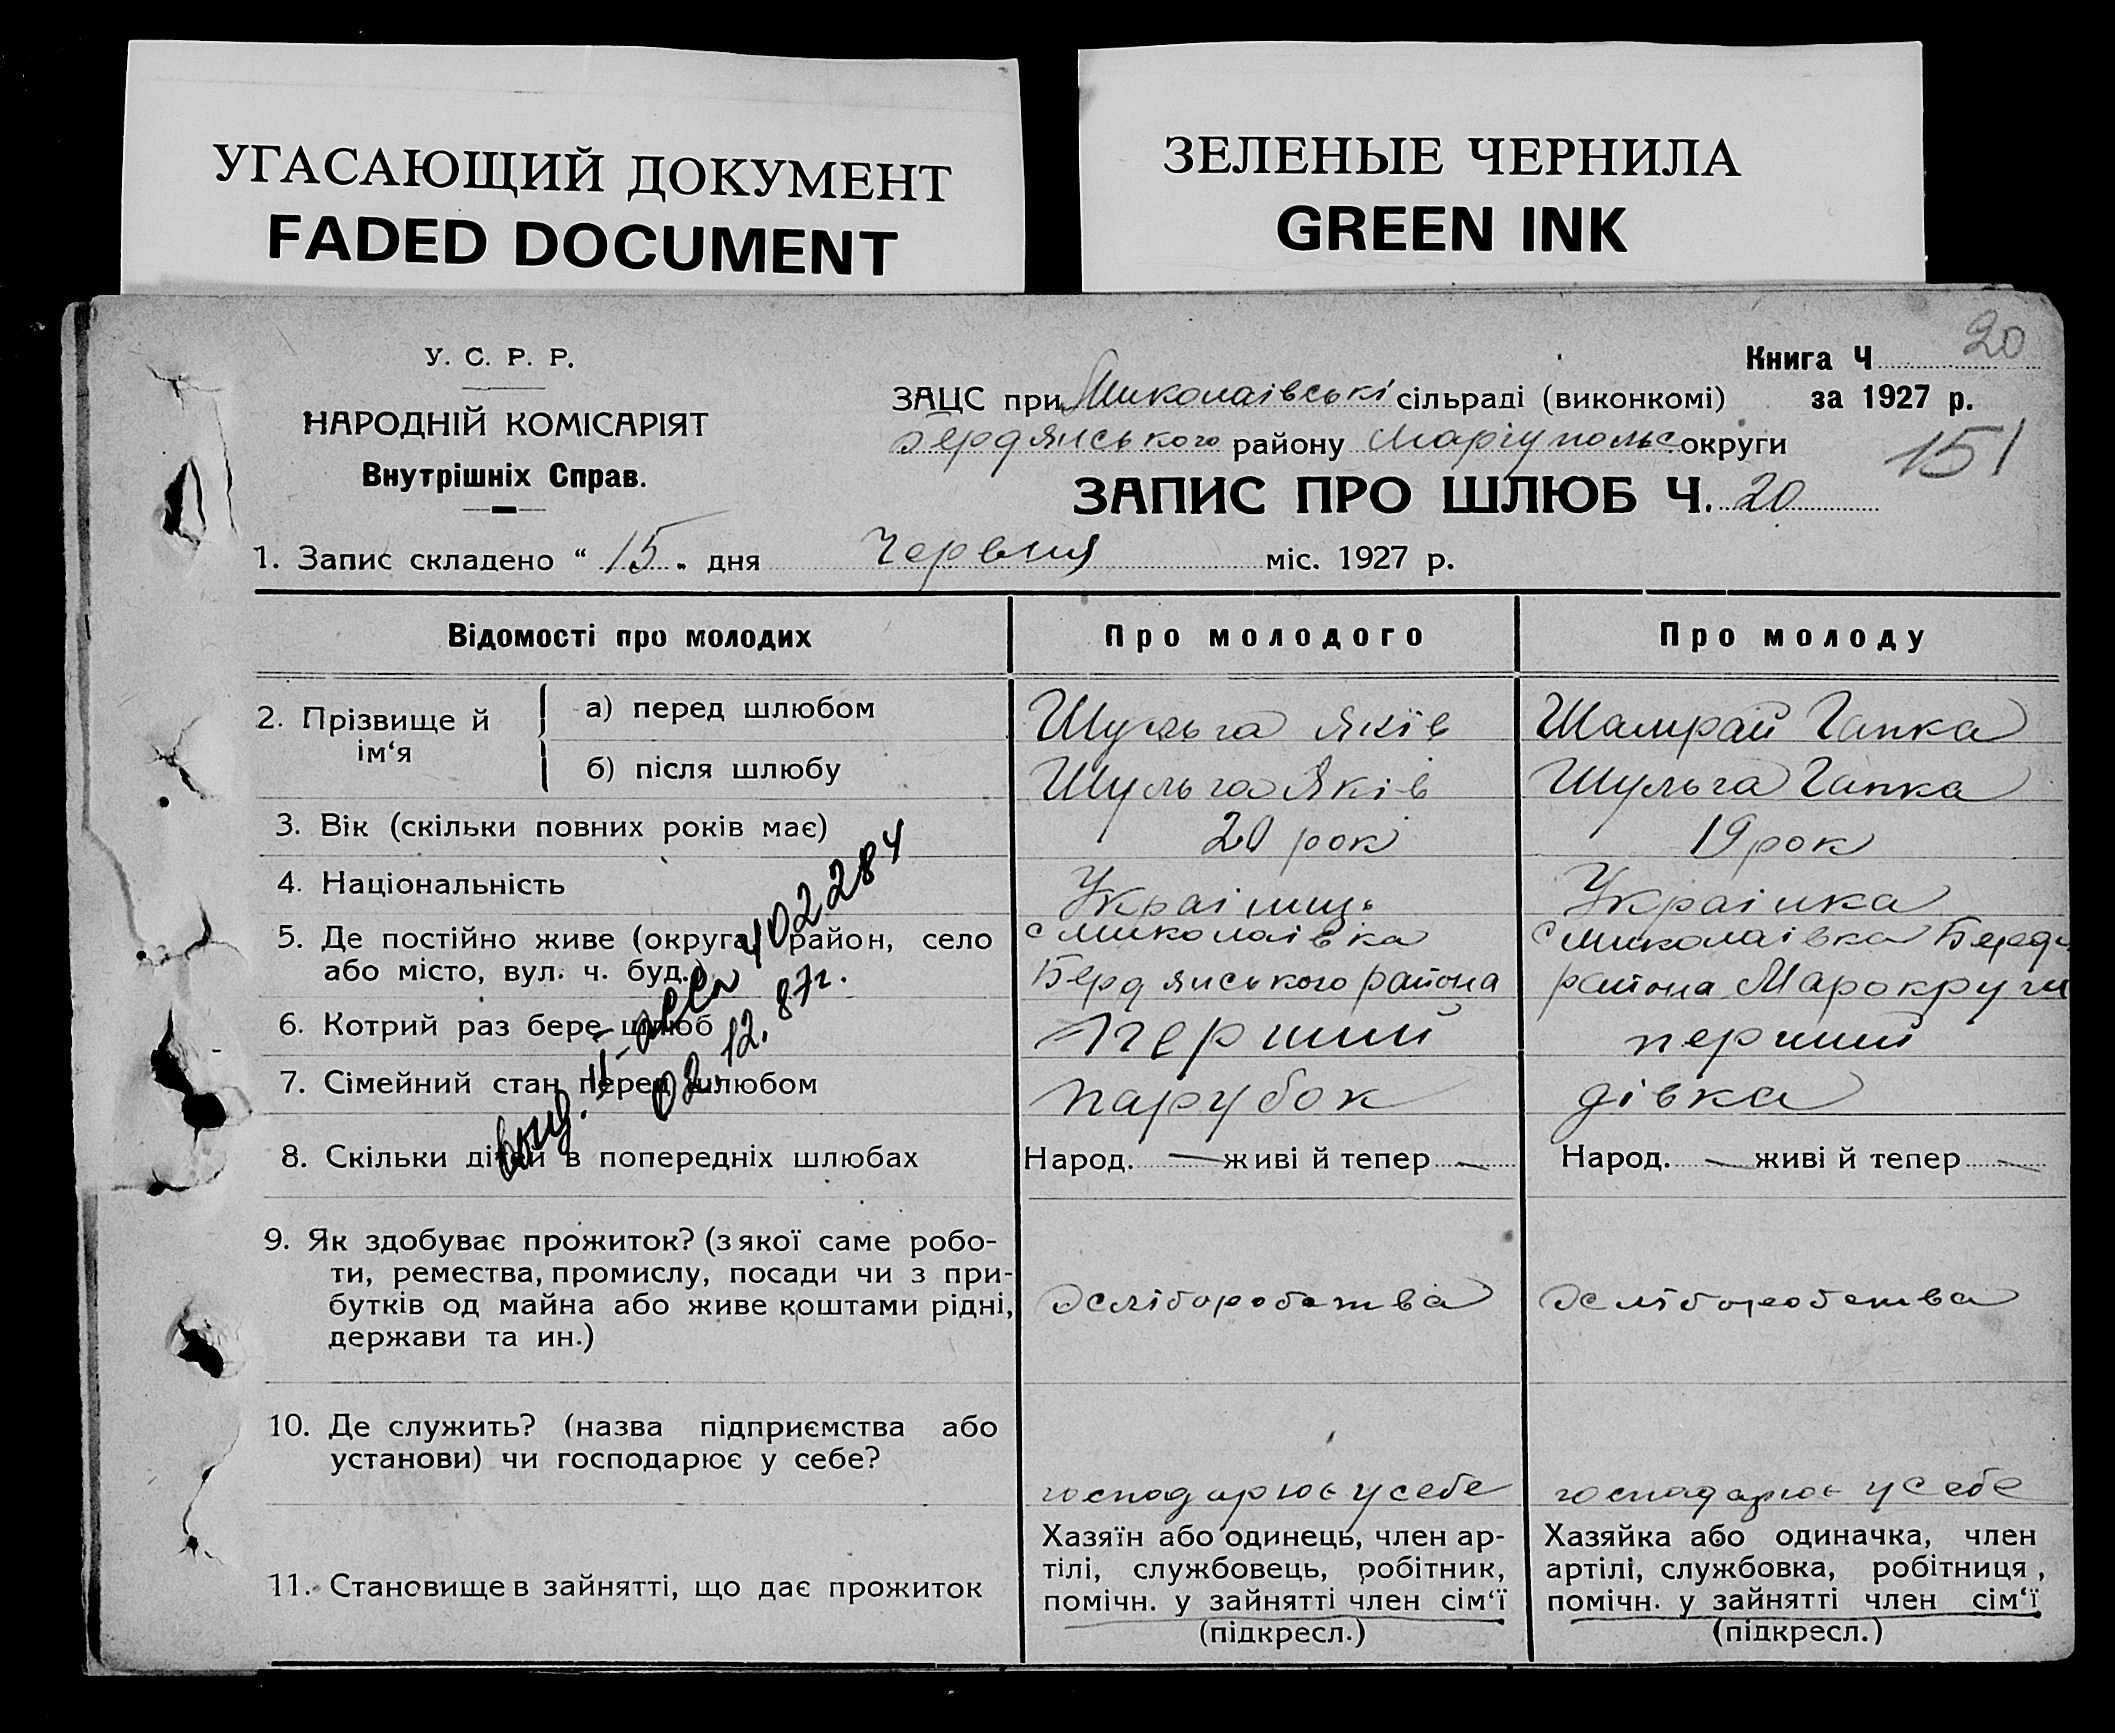 УГАСАЮЩИЙ ДОКУМЕНТ
FADED DOCUMENT
ЗЕЛЕНЫЕ ЧЕРНИЛА
GREEN INK
У. С. Р. Р.
НАРОДНІЙ КОМІСАРІЯТ
Внутрішніх Справ.
20
Книга Ч
ЗАЦС при Миколаівські сільраді (виконкомі) за 1927 р.
Бердянського району Маріупольс округи
151
ЗАПИС ПРО ШЛЮБ Ч. 20
1. Запис складено “ 15 „ дня Червня міс. 1927 р.
Відомості про молодих Про молодого Про молоду
2. Прізвище й ім‘я
а) перед шлюбом Шульга Яків Шамрай Гапка
б) після шлюбу Шульга Яків Шульга Гапка
3. Вік (скільки повних років має) 20 рок 19 рок
4. Національність Украінець Украінка
5. Де постійно живе (округа, район, село с Миколаівка с Миколаівка Бердя
або місто, вул. ч. буд.) Бердянського района района Марокруги
6. Котрий раз бере шлюб Перший перший
7. Сімейний стан перед шлюбом парубок дівка
8. Скільки дітей в попередніх шлюбах Народ. — живі й тепер — Народ. — живі й тепер —
402284
02.12.87г.
9. Як здобуває прожиток? (з якої саме робо-
ти, ремества, промислу, посади чи з при-
бутків од майна або живе коштами рідні, хліборобства хліборобства
держави та ин.)
10. Де служить? (назва підприємства або
установи) чи господарює у себе?
господарює у себе господарює у себе
11. Становище в зайнятті, що дає прожиток
Хазяїн або одинець, член ар-
тілі, службовець, робітник,
помічн. у зайнятті член сім‘ї
(підкресл.)
Хазяйка або одиначка, член
артілі, службовка, робітниця,
помічн. у зайнятті член сім‘ї
(підкресл.)